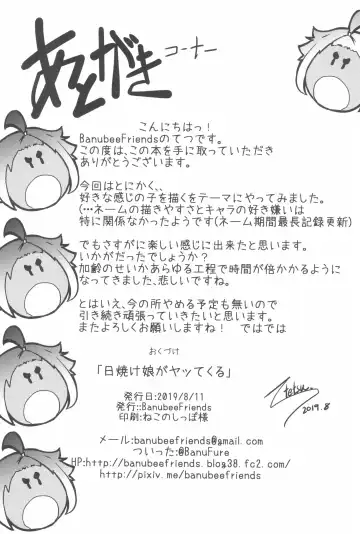 あとがき コーナー
こんにちはっ!
BanubeeFriendsのてつです。
この度は、この本を手に取っていただき
ありがとうございます。
今回はとにかく、、
好きな感じの子を描くをテーマにやってみました。
(…ネームの描きやすさとキャラの好き嫌いは
特に関係なかったようです(ネーム期間最長記録更新)
でもさすがに楽しい感じに出来たと思います。
いかがだったでしょうか?
加齢のせいかあらゆる工程で時間が倍かかるように
なってきました、悲しいですね。
とはいえ、今の所やめる予定も無いので
引き続き頑張っていきたいと思います。
またよろしくお願いしますね! ではでは
おくづけ
「日焼け娘がヤッてくる」
発行日:2019/8/11
発行:BanubeeFriends
印刷:ねこのしっぽ様
Ttetsu
2019.8
メール:banubeefriends@gmail.com
ついった:@BanuFure
HP:http://banubeefriends.blog38.fc2.com/
https://pixiv.me/banubeefriends